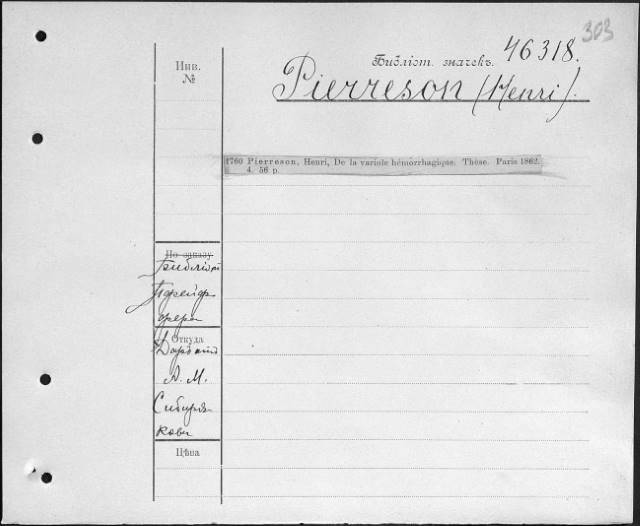 303
Библіот. значекъ. 46318.
Инв.
№
Pierreson (Henri).
1760 Pierreson, Henri, De la variole hémorrhagique. Thèse. Paris 1862.
4. 56 p.
По заказу
Библіот
Пфейф-
фера
Откуда
А. М.
Сибиря-
кова
Цѣна